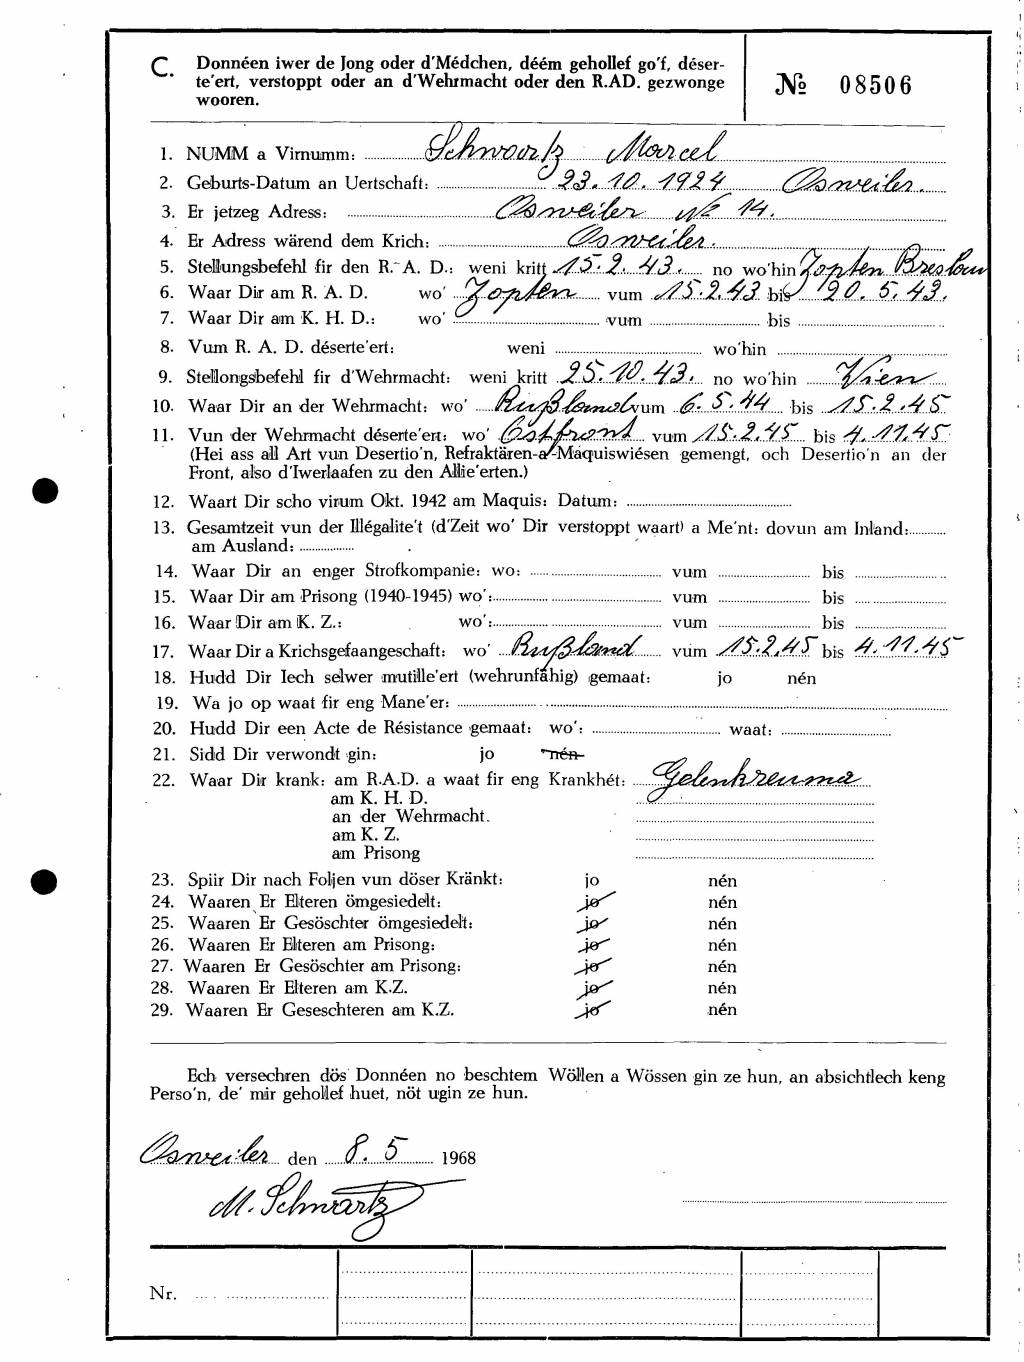 C. Donnéen iwer de Jong oder d'Médchen, déém gehollef go'f, déser-
te'ert, verstoppt oder an d'Wehrmacht oder den R.AD. gezwonge
wooren.
№ 08506
1. NUMM a Virnumm: Schwartz Marcel
2. Geburts-Datum an Uertschaft: 23.10.1924 Osweiler.
3. Er jetzeg Adress: Osweiler № 14.
4. Er Adress wärend dem Krich: Osweiler.
5. Stellungsbefehl fir den R. A. D.: weni kritt 15.2.43. no wo'hin Zopten Breslau
6. Waar Dir am R. A. D. wo' Zopten vum 15.2.43 bis 20.5.43.
7. Waar Dir am K. H. D.: wo' vum bis
8. Vum R. A. D. déserte'ert: weni wo'hin
9. Stellongsbefehl fir d'Wehrmacht: weni kritt 25.10.43. no wo'hin Wien
10. Waar Dir an der Wehrmacht: wo' Rußland vum 6.5.44 bis 15.2.45
11. Vun der Wehrmacht déserte'ert: wo' Ostfront vum 15.2.45 bis 4.11.45
(Hei ass all Art vun Desertio'n, Refraktären-a-Maquiswiésen gemengt, och Desertio'n an der
Front, also d'Iwerlaafen zu den Allie'erten.)
12. Waart Dir scho virum Okt. 1942 am Maquis: Datum:
13. Gesamtzeit vun der Illégalite't (d'Zeit wo' Dir verstoppt waart) a Me'nt: dovun am Inland:
am Ausland:
14. Waar Dir an enger Strofkompanie: wo: vum bis
15. Waar Dir am Prisong (1940-1945) wo': vum bis
16. Waar Dir am K. Z.: wo': vum bis
17. Waar Dir a Krichsgefaangeschaft: wo' Rußland vum 15.2.45 bis 4.11.45
18. Hudd Dir Iech selwer mutille'ert (wehrunfähig) gemaat: jo nén
19. Wa jo op waat fir eng Mane'er:
20. Hudd Dir een Acte de Résistance gemaat: wo': waat:
21. Sidd Dir verwondt gin: jo nén
22. Waar Dir krank: am R.A.D. a waat fir eng Krankhét: Gelenkreuma
am K. H. D.
an der Wehrmacht.
am K. Z.
am Prisong
23. Spiir Dir nach Foljen vun döser Kränkt: jo nén
24. Waaren Er Elteren ömgesiedelt: jo nén
25. Waaren Er Gesöschter ömgesiedelt: jo nén
26. Waaren Er Elteren am Prisong: jo nén
27. Waaren Er Gesöschter am Prisong: jo nén
28. Waaren Er Elteren am K.Z. jo nén
29. Waaren Er Geseschteren am K.Z. jo nén
Ech versechren dös Donnéen no beschtem Wöllen a Wössen gin ze hun, an absichtlech keng
Perso'n, de' mir gehollef huet, nöt ugin ze hun.
Osweiler den 8.5 1968
M. Schwartz
Nr.